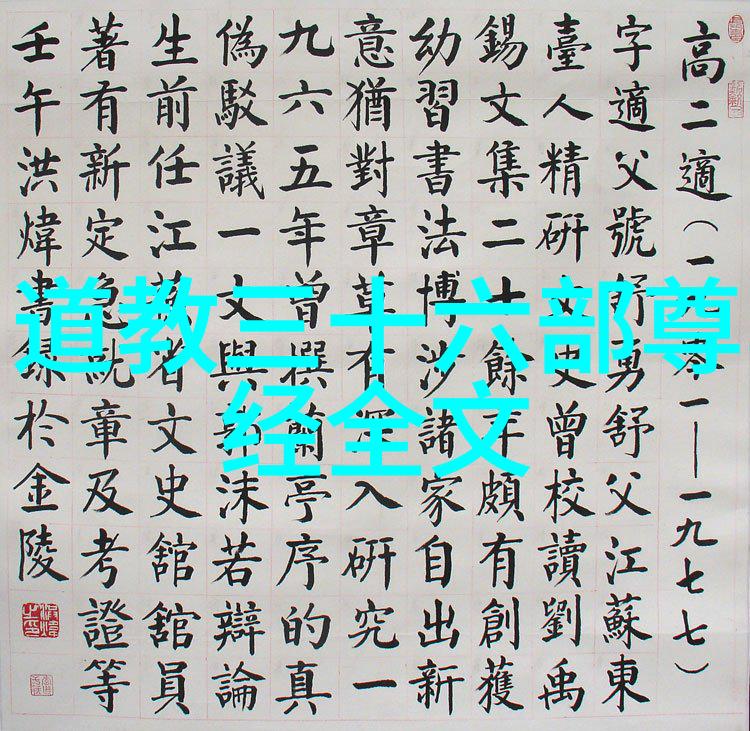 道教三十六部尊
经全文
高二適（一九零一—一九七七）
字適父號舒勇舒父江蘇東
臺人精研文史曾校讀劉禹
錫文集二十餘年頗有創獲
幼習書法博涉諸家自出新
意猶對章草有深入研究一
九六五年曾撰蘭亭序的真
偽駁議一文與郭沫若辯論
生前任江蘇省文史舘舘員
著有新定急就章及考證等
壬午洪煒書錄於金陵